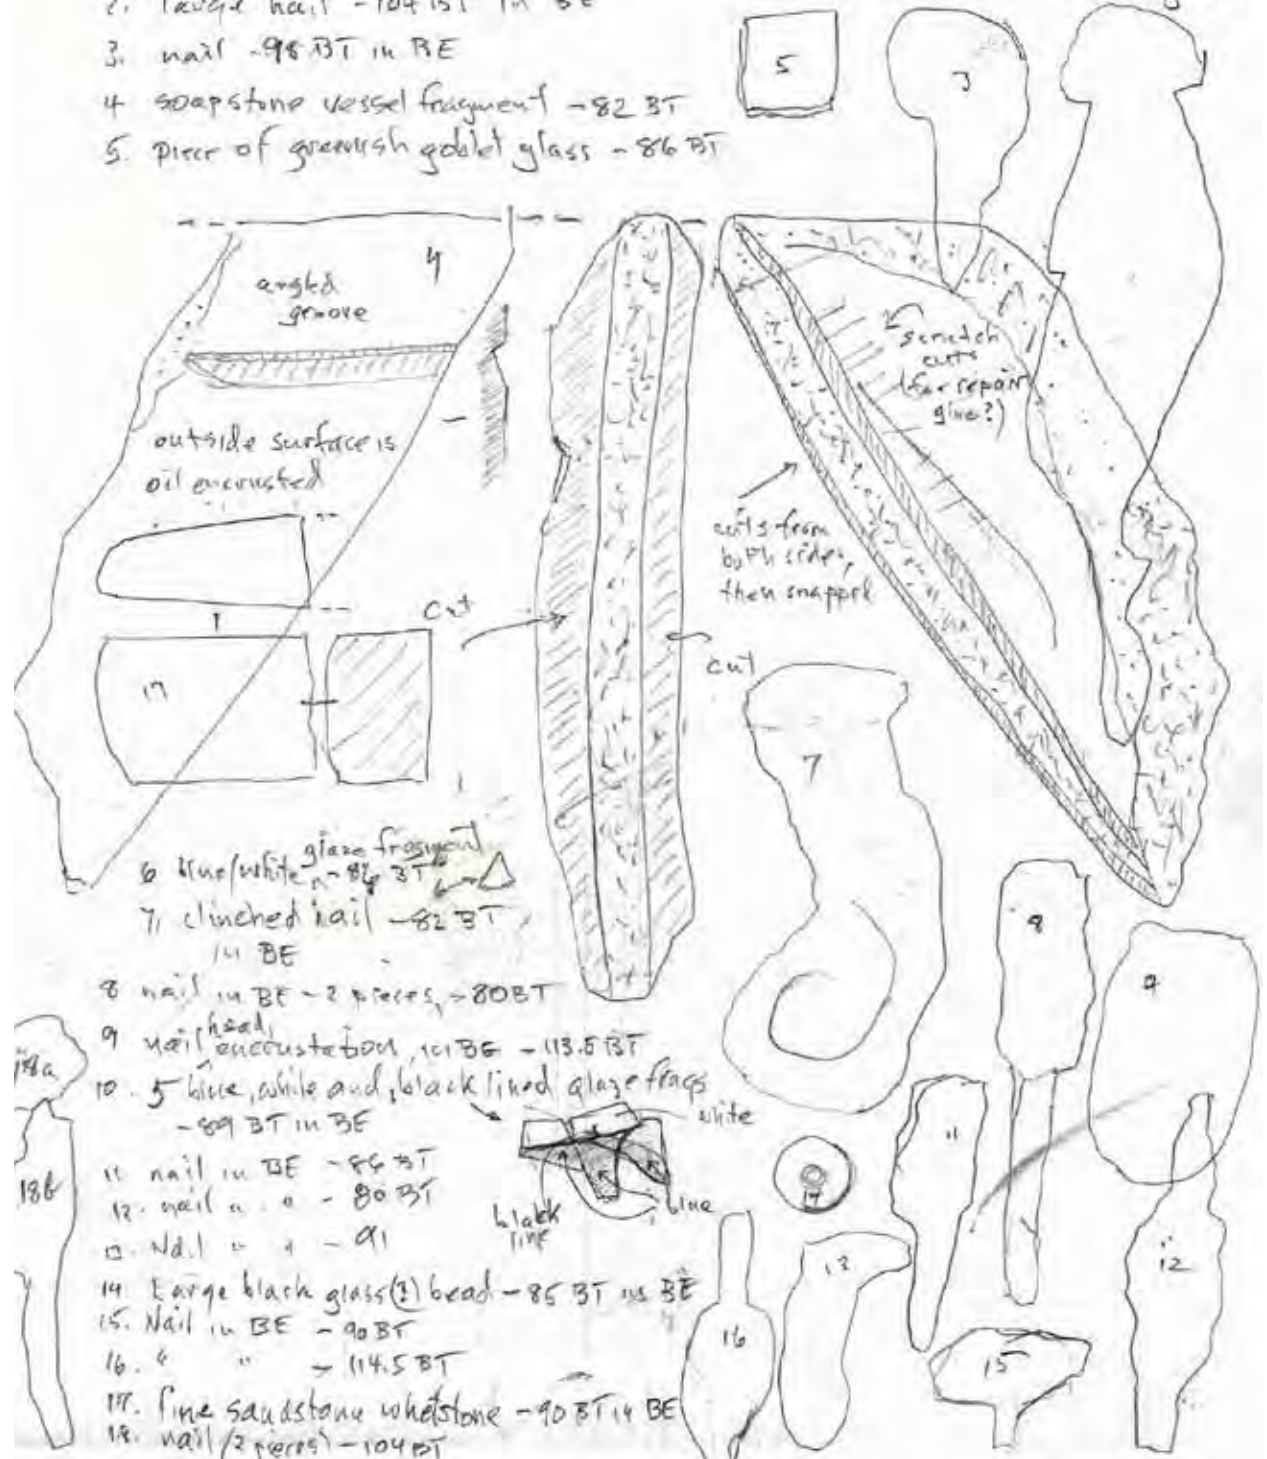 2. large nail - 104 BT in BE
3. nail - 98 BT in BE
4 soapstone vessel fragment - 82 BT
5. piece of greenish goblet glass - 86 BT
5
3
4
angled
groove
scratch
cuts
(for repair
glue?)
outside surface is
oil encrusted
cuts from
both sides,
then snapped
cut
cut
17
7
6 blue/white glaze fragment - 86 BT
6
7, clinched nail - 82 BT,
in BE
8 nail in BE - 2 pieces, - 80 BT
8
9
9 nail head, encrustation, in BE - 113.5 BT
18a
10. 5 blue, white and, black lined glaze frags
- 89 BT in BE
white
blue
black
line
11 nail in BE - 86 BT
12. nail " " - 80 BT
13. Nail " " - 91
18b
11
14 Large black glass(?) bead - 85 BT in BE
15. Nail in BE - 90 BT
16. " " - 114.5 BT
17. fine sandstone whetstone - 90 BT in BE
18. nail (2 pieces) - 104 BT
13
12
16
15